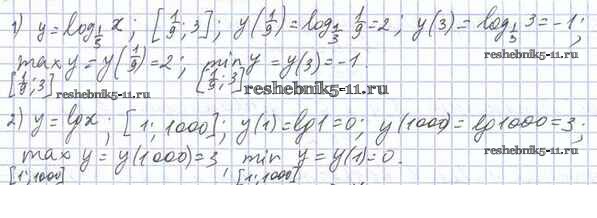 1) y = log_{1/3} x; [1/9; 3]; y(1/9) = log_{1/3} 1/9 = 2; y(3) = log_{1/3} 3 = -1;
max y = y(1/9) = 2; min y = y(3) = -1.
[1/9; 3] [1/9; 3]
reshebnik5-11.ru reshebnik5-11.ru
2) y = lg x; [1; 1000]; y(1) = lg 1 = 0; y(1000) = lg 1000 = 3;
max y = y(1000) = 3, min y = y(1) = 0.
reshebnik5-11.ru
[1; 1000] [1; 1000]